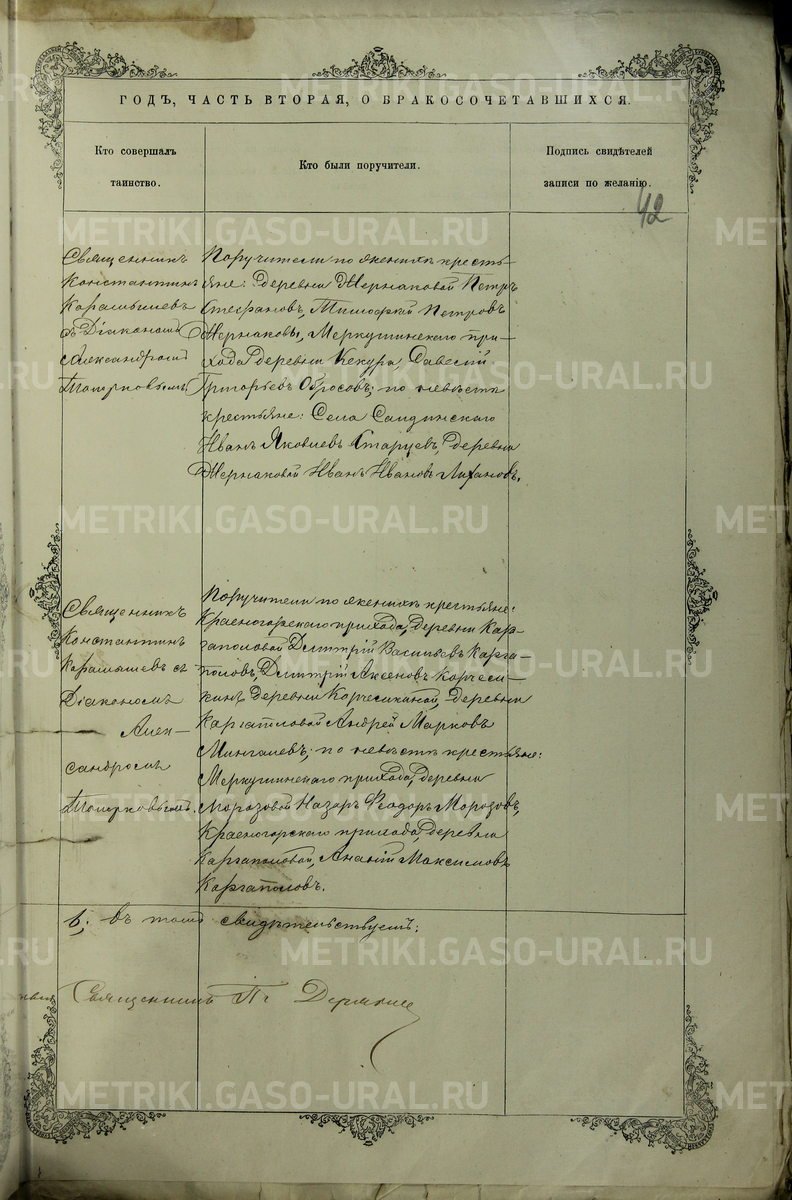 ГОДЪ, ЧАСТЬ ВТОРАЯ, О БРАКОСОЧЕТАВШИХСЯ.
Кто совершалъ
таинство.
Кто были поручители.
Подпись свидѣтелей
записи по желанію.
42
Священникъ
Константинъ
Карашышевъ
съ Діакономъ
Александромъ
Топорковымъ
Поручители по женихѣ кресть-
яне: деревни Жернаковой Петръ
Стефановъ, Тимофей Петровъ
Жернаковы, Меркушинскаго при-
хода деревни Кекура, Савелій
Григорьевъ Обросовъ; по невѣстѣ
крестьяне: Села
Иванъ Яковлевъ Старцевъ, деревни
Жернаковой Иванъ Ивановъ Лихановъ.
Священникъ
Константинъ
Карашышевъ съ
Діакономъ
Алек-
сандромъ
Топорковымъ.
Поручители по женихѣ крестьяне:
Красногорскаго прихода, деревни Кар-
гаполовой Дмитрій Васильевъ Карга-
половъ, Дмитрій Аксеновъ
деревни деревни
Каргаполовой Андрей Марковъ
Мингалевъ; по невѣстѣ крестьяне:
Меркушинскаго прихода, деревни
Морозовой Назаръ Ѳеодоръ Морозовъ,
Красногорскаго прихода, деревни
Каргаполовой, Ананій Максимовъ
Каргаполовъ.
въ томъ свидѣтельствуетъ:
Священникъ
METRIKI.GASO-URAL.RU